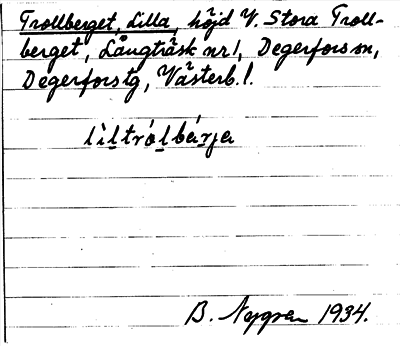 Trollberget, Lilla, höjd V. Stora Troll-
berget, Långträsk nr 1, Degerfors sn,
Degerfors tg, Västerb. l.
lìltrólbárja
B. Nygren 1934.